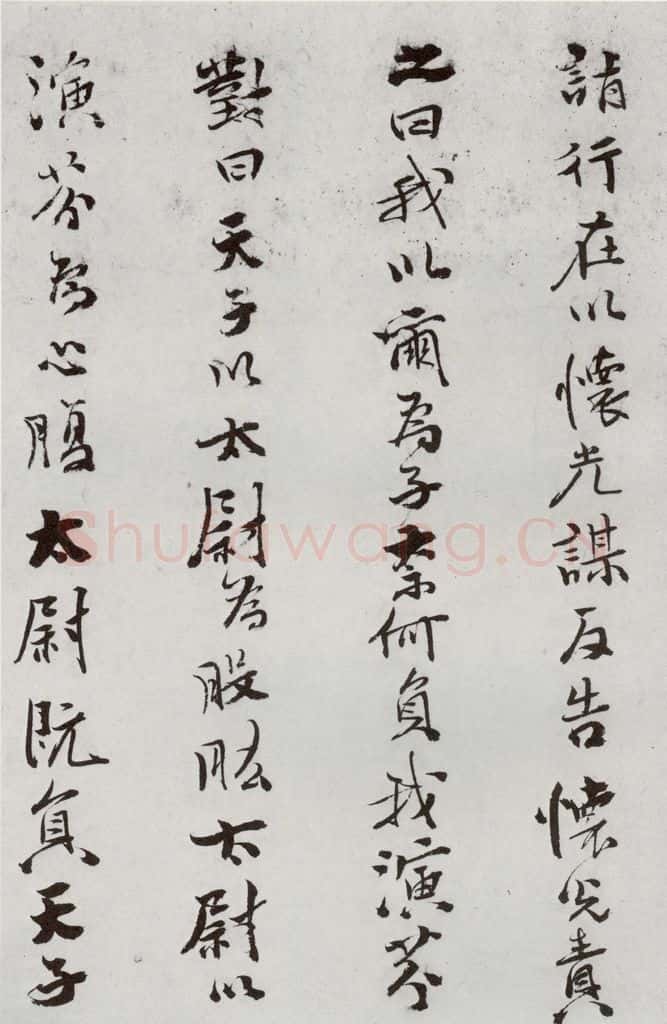 詣行在以懷光謀反告懷光責
之曰我以爾為子奈何負我演芬
對曰天子以太尉為股肱太尉以
演芬為心腹太尉既負天子
Shufawang.CN